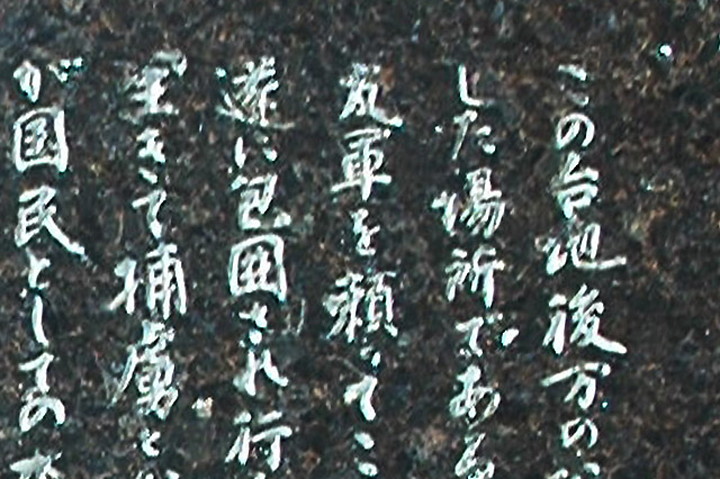 この台地後方の
した場所である
友軍を頼ってこ
遂に包囲され行
生きて捕虜と
が国民としての